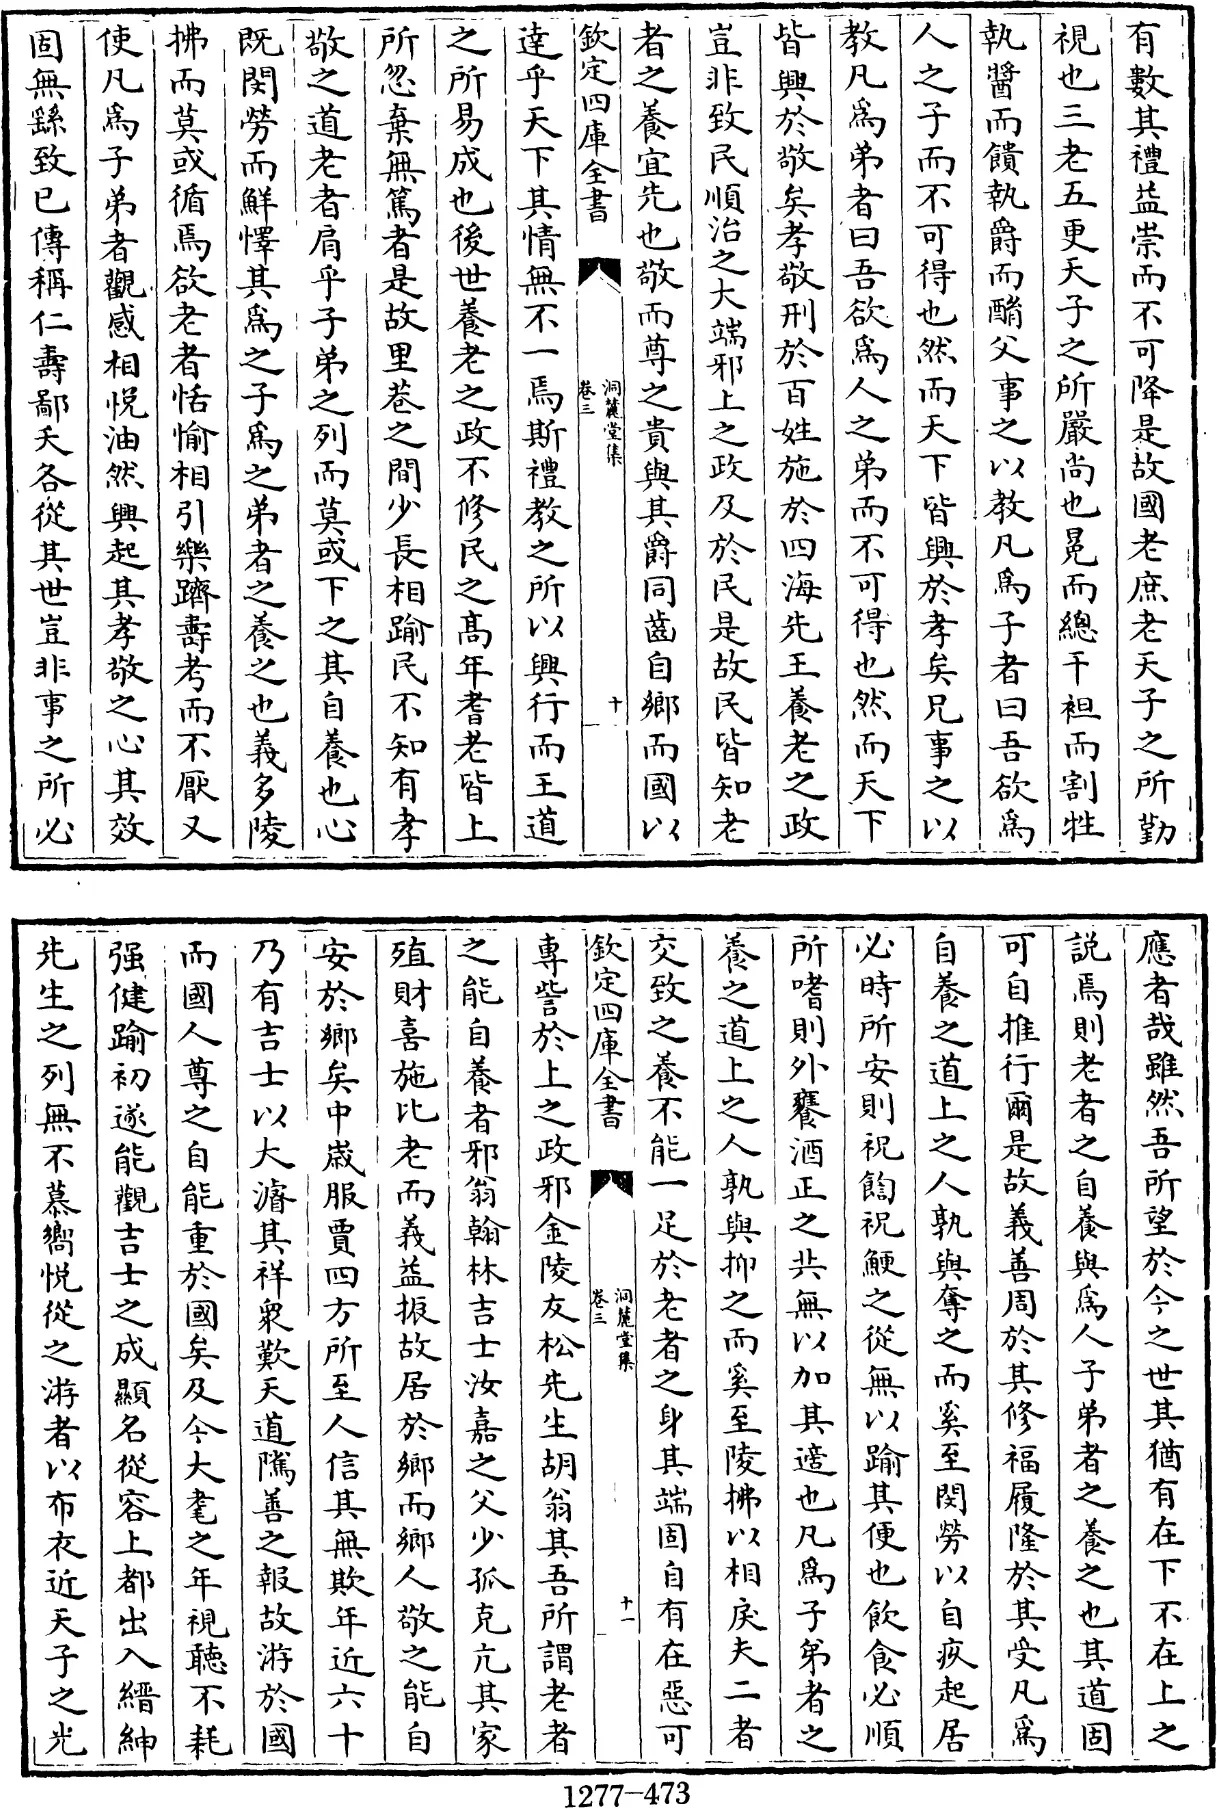 有數其禮益崇而不可降是故國老庶老天子之所勤
視也三老五更天子之所嚴尚也冕而總干袒而割牲
執醬而饋執爵而酳父事之以教凡為子者曰吾欲為
人之子而不可得也然而天下皆興於孝矣兄事之以
教凡為弟者曰吾欲為人之弟而不可得也然而天下
皆興於敬矣孝敬刑於百姓施於四海先王養老之政
豈非致民順治之大端邪上之政及於民是故民皆知老
者之養宜先也敬而尊之貴與其爵同齒自鄉而國以
欽定四庫全書
洞麓堂集
卷三
十
達乎天下其情無不一焉斯禮教之所以興行而王道
之所易成也後世養老之政不修民之髙年耆老皆上
所忽棄無篤者是故里巷之間少長相踰民不知有孝
敬之道老者肩乎子弟之列而莫或下之其自養也心
既閔勞而鮮懌其為之子為之弟者之養之也義多陵
拂而莫或循焉欲老者恬愉相引樂躋壽考而不厭又
使凡為子弟者觀感相悅油然興起其孝敬之心其效
固無繇致已傳稱仁壽鄙夭各從其世豈非事之所必
應者哉雖然吾所望於今之世其猶有在下不在上之
説焉則老者之自養與為人子弟者之養之也其道固
可自推行爾是故義善周於其修福履隆於其受凡為
自養之道上之人孰與奪之而奚至閔勞以自疚起居
必時所安則祝餰祝鯁之從無以踰其便也飲食必順
所嗜則外饔酒正之共無以加其適也凡為子弟者之
養之道上之人孰與抑之而奚至陵拂以相戾夫二者
交致之養不能一足於老者之身其端固自有在惡可
欽定四庫全書
洞麓堂集
卷三
十一
專訾於上之政邪金陵友松先生胡翁其吾所謂老者
之能自養者邪翁翰林吉士汝嘉之父少孤克亢其家
殖財喜施比老而義益振故居於鄉而鄉人敬之能自
安於鄉矣中歲服賈四方所至人信其無欺年近六十
乃有吉士以大濬其祥衆歎天道隲善之報故游於國
而國人尊之自能重於國矣及今大耄之年視聽不耗
强健踰初遂能觀吉士之成顯名從容上都出入縉紳
先生之列無不慕嚮悅從之游者以布衣近天子之光
1277-473